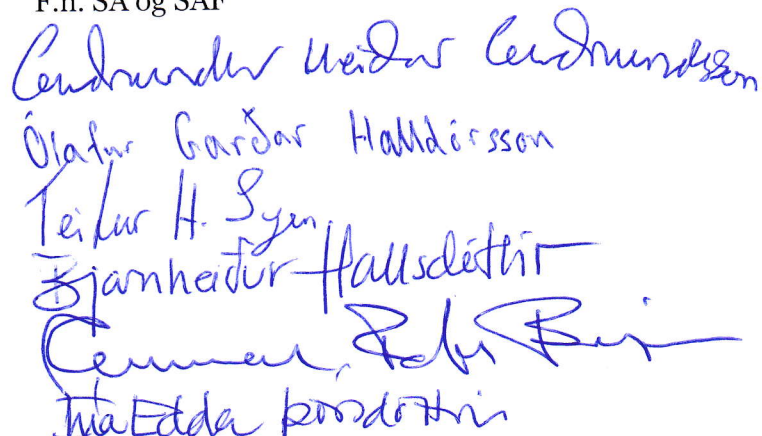 F.h. SA og SAF
Guðmundur Heiðar Guðmundsson
Ólafur Garðar Halldórsson
Teitur H. Syen
Bjarnheiður Hallsdóttir
Gunnar
Inga Edda Þórsdóttir